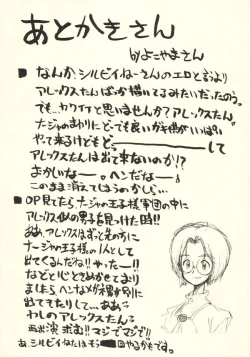 あとがきさん
byよこやまさん
なんか、シルビィねーさんのエロと言うより
アレックスたんばっか描いてるみたいだったのう。
でも、カワイイと思いませんか?アレックスたん。
ナージャのまわりにどーでも良いガキ供がいっぱい
やって来るけどもどーーーーーして
アレックスたんは出て来ないのか!?
よかしいなー。ヘンだなー。
このまま消えてしまうのかし…
OP見てたらナージャの王子様軍団の中に
アレックス似の男子を見つけた時!!
ああ、アレックスはずっと先の方に
ナージャの王子様の1人として
出てくるんだね!!やったー!!
などと心ときめかせており
ましたらヘンなメガネ男が別に
出てきたりして…ああ〜
わしのアレックスたん〜
再出演求む!!マジでマジで!!
あ、シルビィねたはもう 回やるかもです。